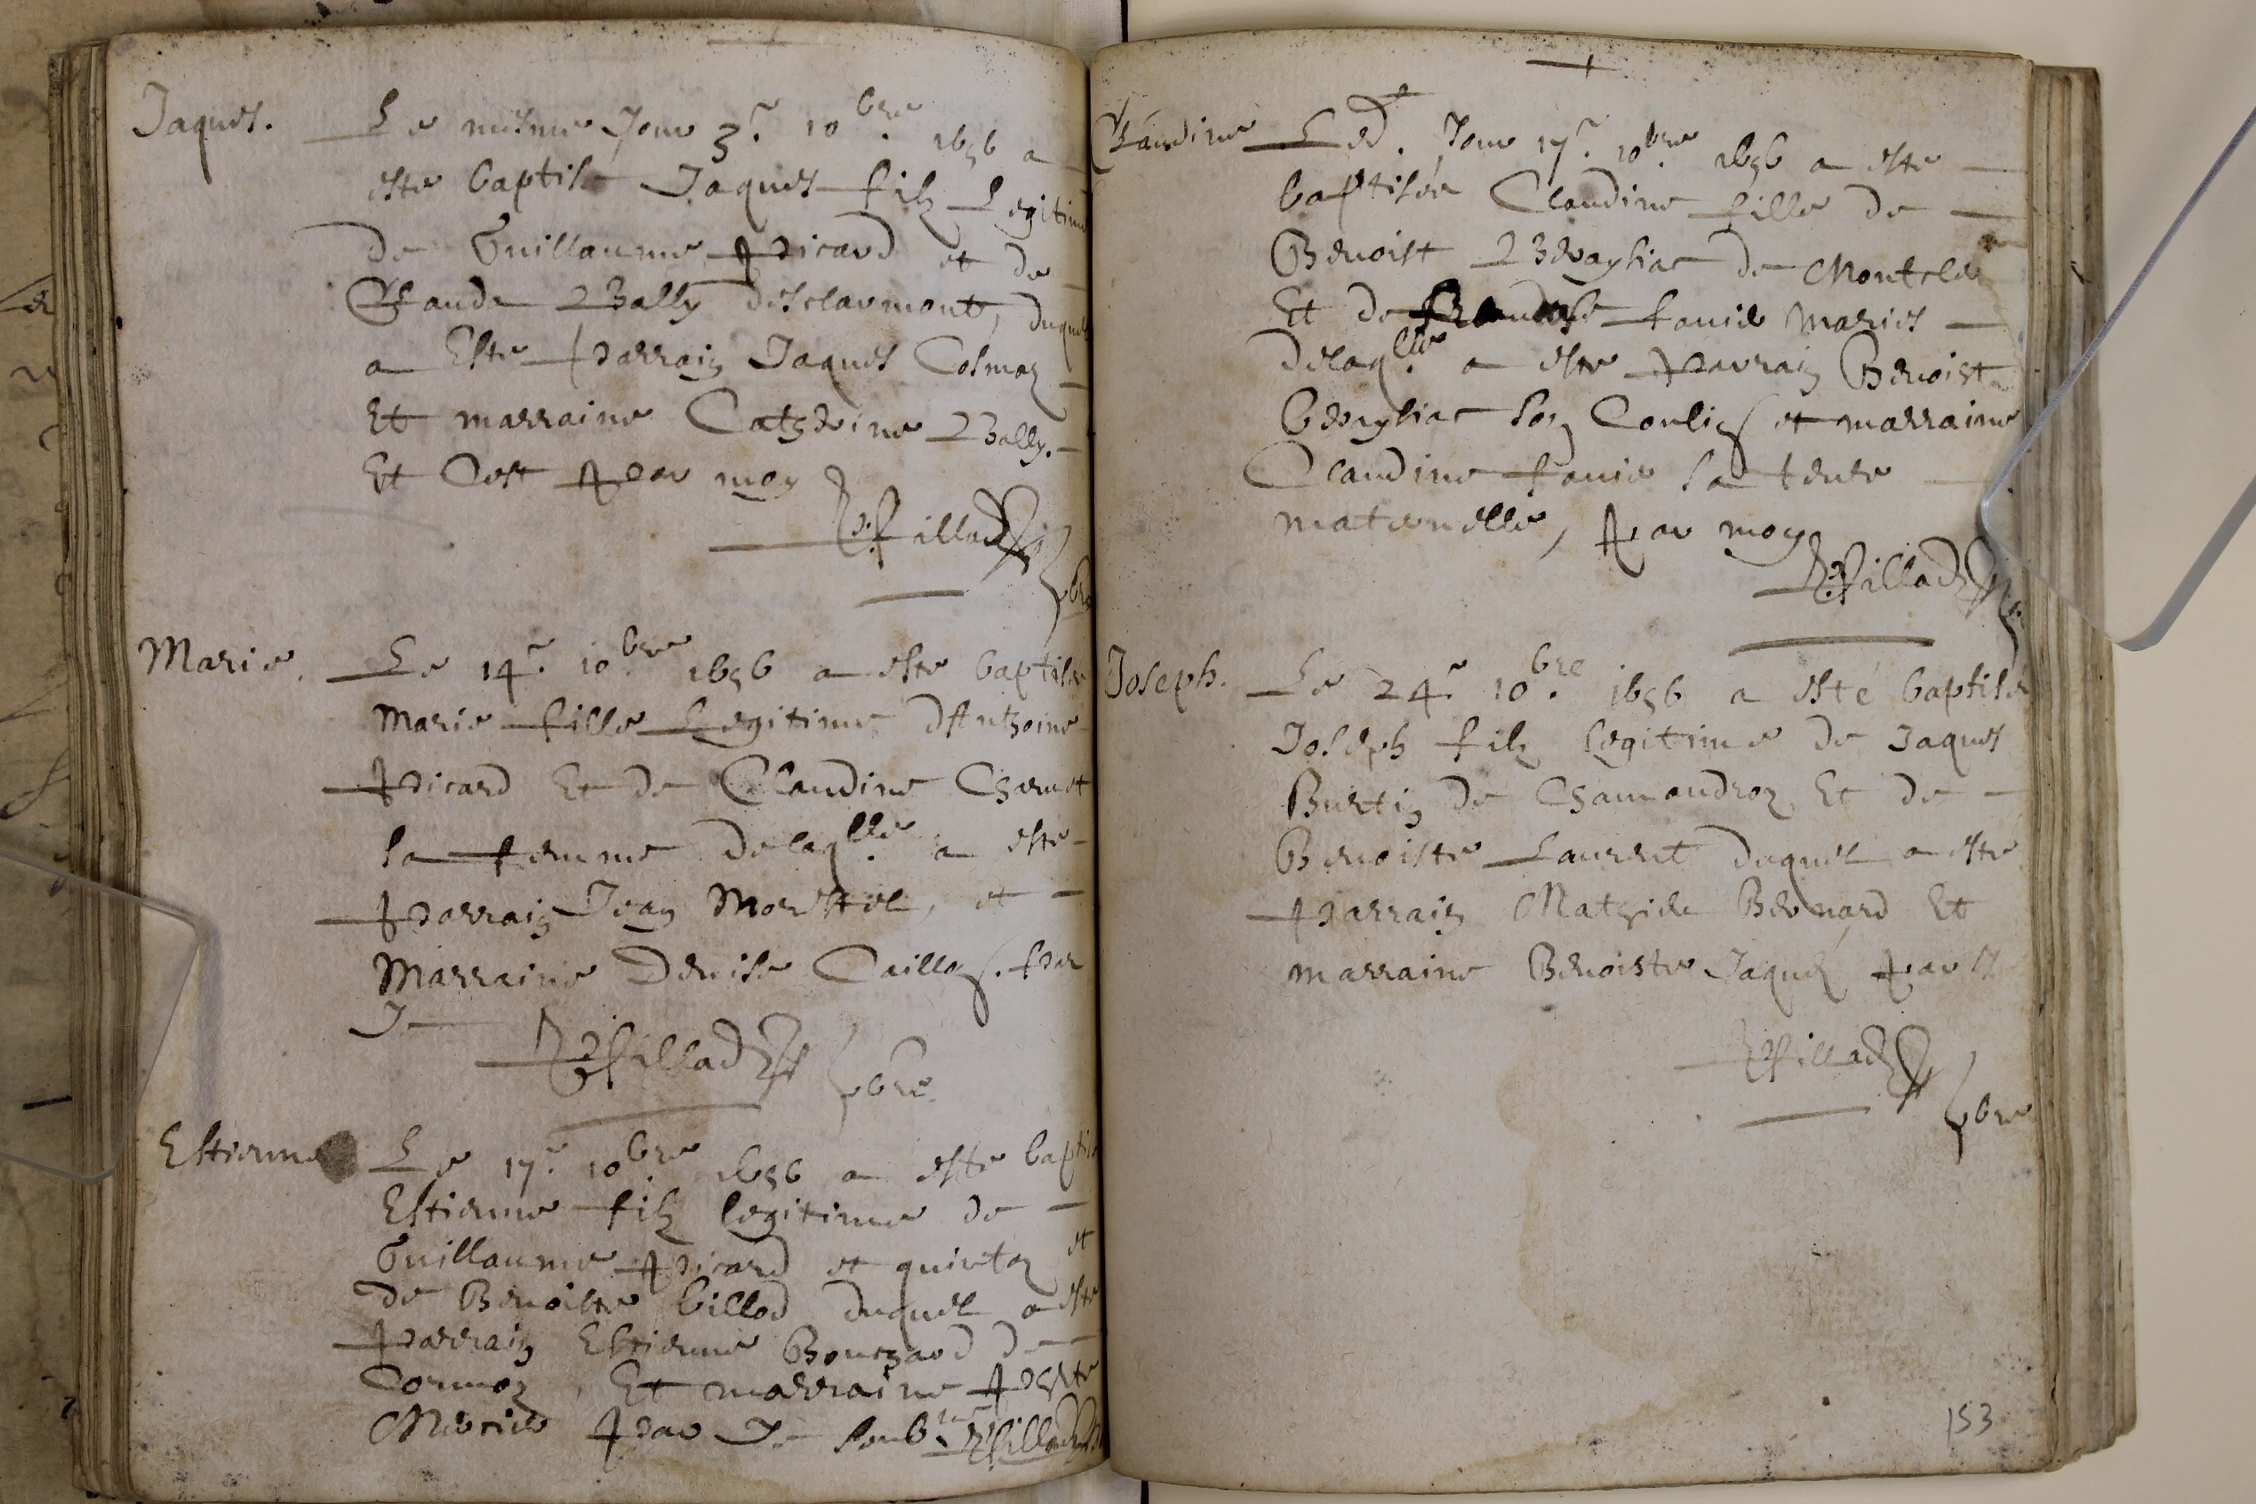 Jaques.
Le mesme Jour 3.e 10.bre 1656 a
esté baptisé Jaques filz Legitime
de Guillaume Picard et de
Claude Bally desclarmont, duquel
a Esté parrain Jaques Cosmaz
Et marraine Catherine Bally.
Et Cest par moy
Marie.
Le 14.e 10.bre 1656 a esté baptisée
Marie fille Legitime d'Anthoine
Picard Et de Claudine Charvet
sa femme delaq.lle a esté
parrain Jean Morestel, et
Marraine Denise Caillon. par
Je
vbre
Estienne
Le 17.e 10.bre 1656 a esté baptisé
Estienne filz legitime de
Guillaume Picard et quintaz et
de Benoiste billod duquel a esté
parrain Estienne Bouchard de
Cormoz, Et marraine
Mercier par Je soub.né
Claudine
Led. Jour 17.e 10.bre 1656 a esté
baptisée Claudine fille de
Benoist de
Et de favier Mariés
delaq.lle a esté parrain Benoist
son Cousin et marraine
Claudine favier sa tente
maternelle, par moy
Joseph.
Le 24.e 10.bre 1656 a esté baptisé
Joseph filz legitime de Jaques
Burtin de Chamandroz Et de
Benoiste Laurent duquel a esté
parrain Mathieu Bernard Et
marraine Benoiste par
vbre
153